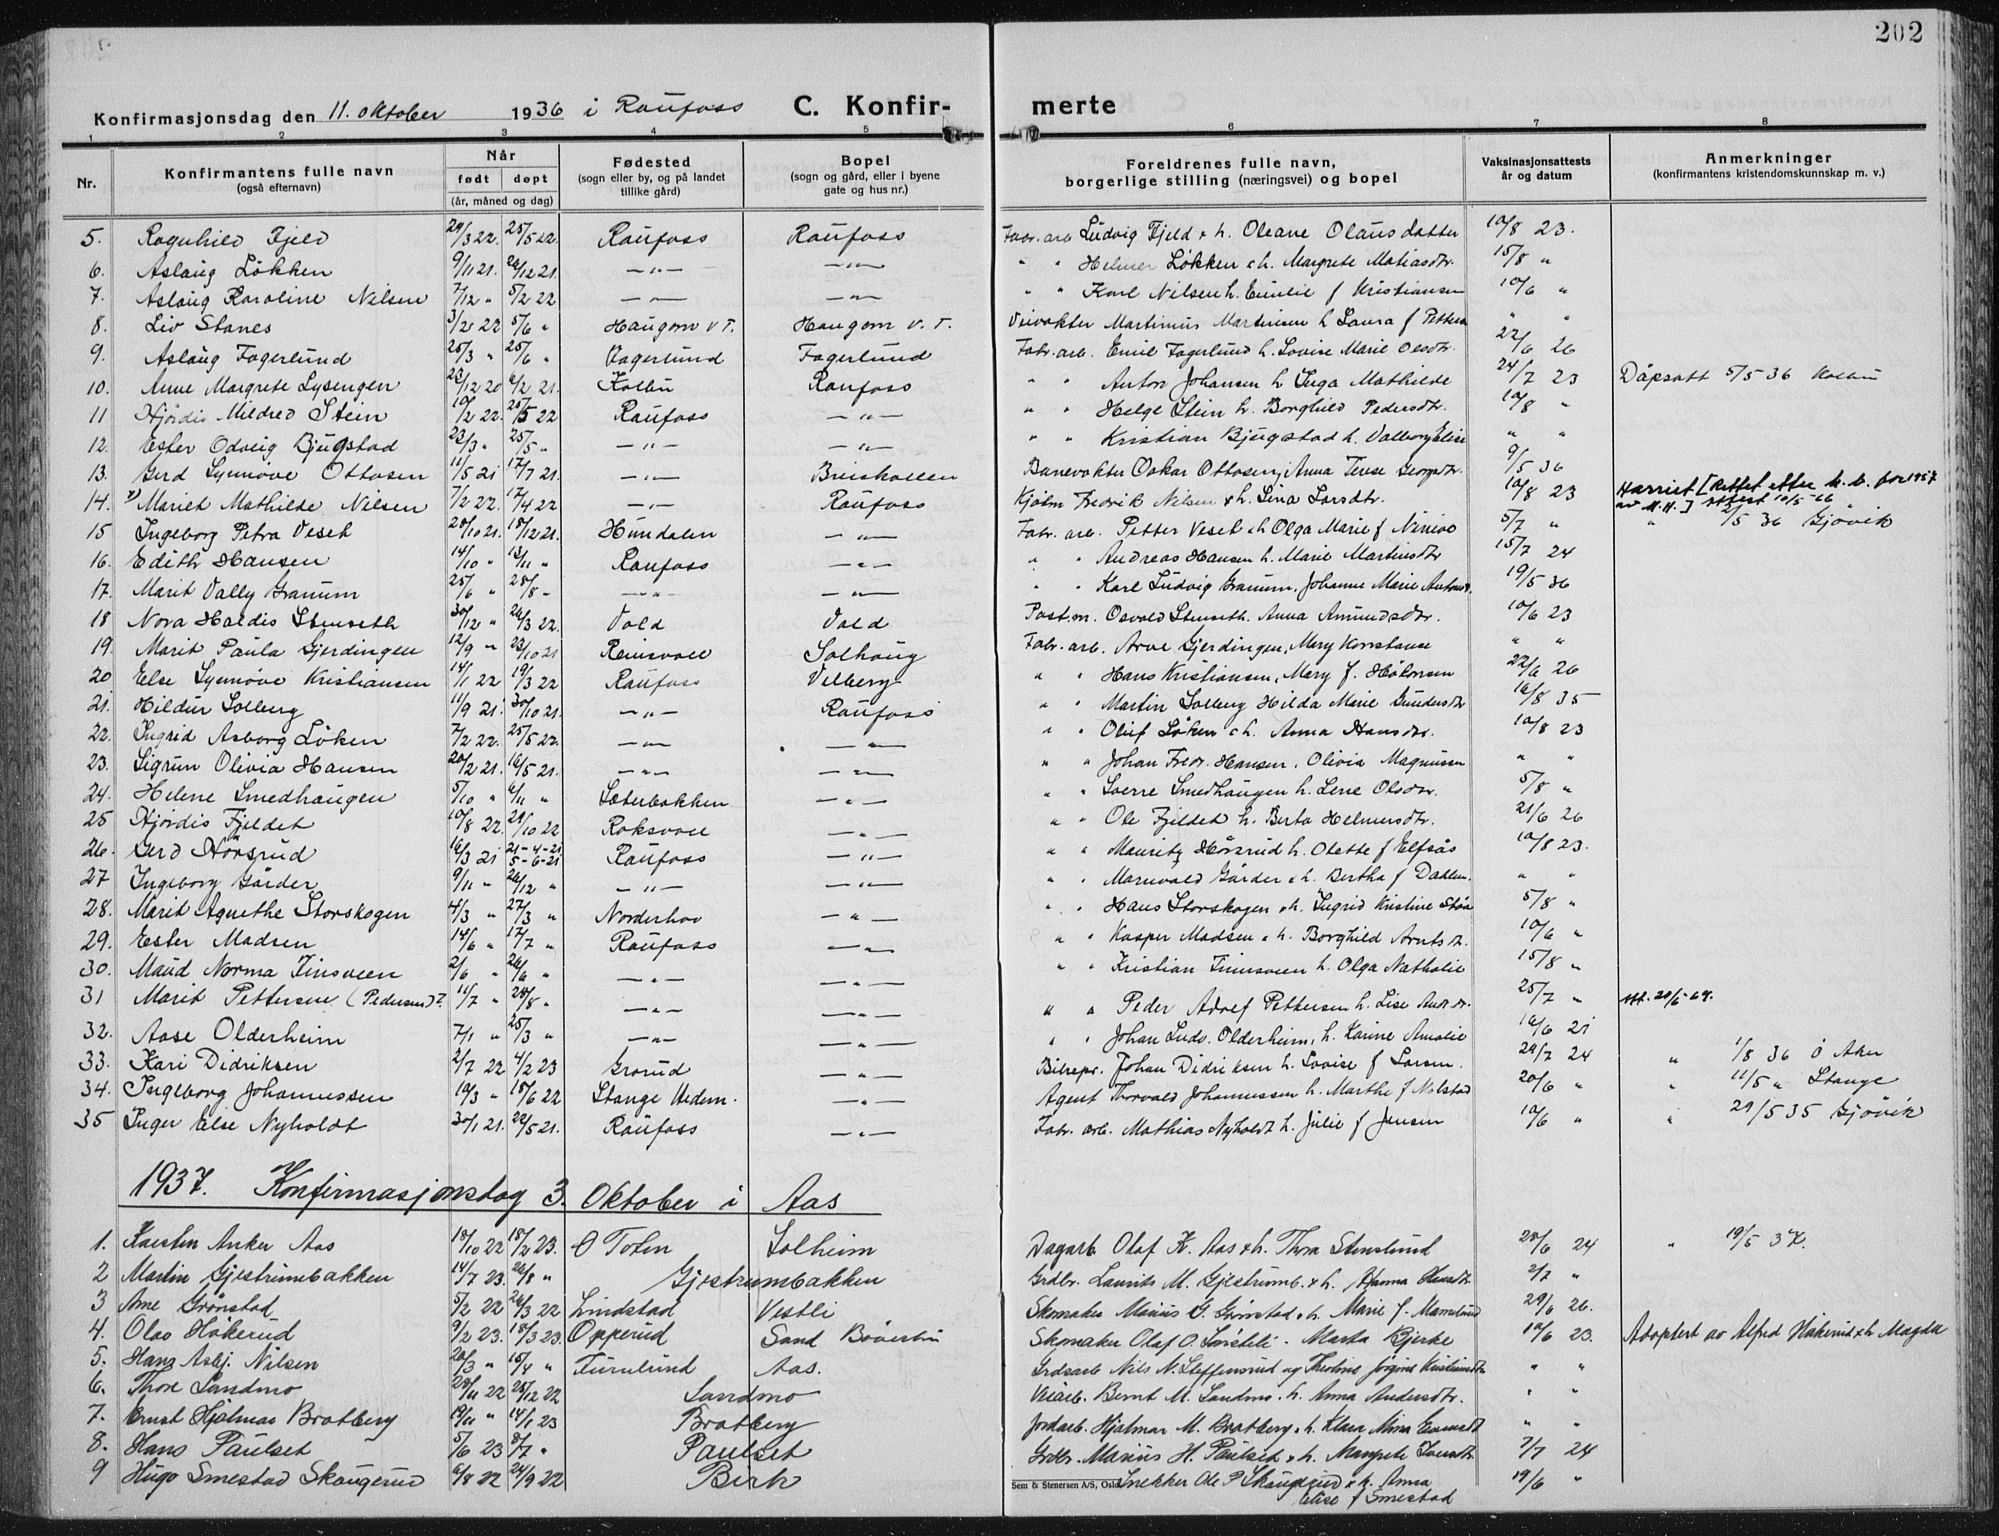 202
Konfirmasjonsdag den 11. oktober 1936 i Raufoss C. Konfir- merte
1 2 3 4 5 6 7 8
Nr. Konfirmantens fulle navn (også efternavn) Når født døpt (år, måned og dag) Fødested (sogn eller by, og på landet tillike gård) Bopel (sogn og gård, eller i byene gate og hus nr.) Foreldrenes fulle navn, borgerlige stilling (næringsvei) og bopel Vaksinasjonsattests år og datum Anmerkninger (konfirmantens kristendomskunnskap m. v.)
5. Ragnhild Fjeld 29/3 22. 25/5 22. Raufoss Raufoss Fabr. arb Ludvig Fjeld & h. Oleane Olausdatter 10/8 23.
6. Aslaug Løkken 9/11 21. 26/12 21. —"— —"— " " Helmer Løkken & h. Margrete Matiasdtr. 15/8 "
7. Aslaug Karoline Nilsen 7/12 " 5/2 22 —"— —"— " " Karl Nilsen h. Emilie f Kristiansen 10/6 "
8. Liv Stanes 3/2 22 5/6 " Haugom V.T. Haugom V.T. Veivokter Martinius Martinsen h Laura f Petters " "
9. Aslaug Fagerlund 25/3 " 25/6 " Fagerlund Fagerlund Fabr. arb. Emil Fagerlund h. Lovise Marie Olsdtr. 22/6 26
10. Anne Margrete Lysengen 23/12 20 6/2 21. Kolbu Raufoss " " Anton Johansen h Inga Mathilde 24/7 23 Dåpsatt 5/5 36 Kolbu
11 Hjørdis Mildred Stein 10/2 22. 25/5 22 Raufoss —"— " " Helge Stein h. Borghild Pedersdtr. 10/8 "
12. Ester Odveig Bjugstad 22/3 " 25/5 " —"— —"— " " Kristian Bjugstad h. Valborg Elise " "
13. Gerd Synnøve Ottosen 11/5 21 17/7 21. —"— Breiskallen Banevokter Oskar Ottosen, Anna Terese Georgdtr. 9/5 36
14. Mariet Mathilde Nilsen 7/2 22. 17/4 22 —"— Raufoss Kjølm Fredrik Nilsen & h. Lina Larsdtr. 10/8 23 Harriet [Rettet etter k. b. for 1957 av M.H.] Attest 10/5-66
15 Ingeborg Petra Veset 28/10 21. 18/12 21. Hunndalen —"— Fabr. arb. Petter Veset & h Olga Marie f Ninive 5/7 " " 2/5 36 Gjøvik
16. Edith Hansen 14/10 " 13/11 " Raufoss —"— " " Andreas Hansen h. Marie Martinsdtr 15/7 24
17. Marit Vally Granum 25/6 " 28/8 - —"— —"— " " Karl Ludvig Granum, Johanne Marie Antonsd. 19/5 36
18 Nora Haldis Stenseth 30/12 " 26/3 22. Vold Vold Postm. Osvald Stenseth. Anna Amundsdtr. 10/6 23
19. Marit Paula Gjerdingen 12/9 " 23/10 21 Reinsvoll Solhaug Fabr. arb. Arve Gjerdingen, Mary Konstanse " "
20 Else Synnøve Kristiansen 14/1 22 19/3 22 Raufoss Vilberg " " Hans Kristiansen, Mary f. Håkonsen 22/6 26
21. Hildur Solberg 11/9 21. 30/10 21. —"— Raufoss " " Martin Solberg Hilda Marie Gundersdtr 16/8 35
22. Ingrid Asborg Løken 7/2 22. 25/5 22. —"— —"— " " Oluf Løken & h. Anna Hansdtr. 10/8 23
23. Sigrun Olivia Hansen 20/2 21. 16/5 21. —"— —"— " " Johan Fredr. Hansen, Olivia Magnussen " "
24. Helene Smedhaugen 5/10 " 6/11 " Sæterbakken —"— " " Sverre Smedhaugen h. Lene Olsdtr. 5/8 "
25 Hjørdis Fjeldet 10/8 22. 29/10 22 Roksvoll —"— " " Ole Fjeldet h. Berta Helmersdtr. 21/6 26
26. Gerd Hørsrud 16/3 21 21-4-21 5-6-21 Raufoss —"— " " Mauritz Hørsrud h. Olette f Elfsås 10/8 23.
27 Ingeborg Gårder 9/11 " 26/12 " —"— —"— " " Marinvald Gårder & h. Bertha f Dahlen. " "
28. Marit Agnethe Storskogen 4/3 " 27/3 " Norderhov —"— " " Hans Storskogen & h. Ingrid Kristine Stöa 5/8 "
29. Ester Madsen 14/6 " 17/7 " Raufoss —"— " " Kasper Madsen & h. Borghild Arntsd. 10/6 "
30. Maud Norma Finsveen 2/6 " 26/6 " —"— —"— " " Kristian Finnsveen h. Olga Nathalie 15/8 "
31 Marit Pettersen (Pedersen)? 11/7 " 28/8 " —"— —"— " " Peder Adolf Pettersen h. Lise Andr.dr. 25/7 " Att. 20/6-64.
32. Aase Olderheim 7/1 " 25/3 " —"— —"— " " Johan Ludv. Olderheim, h. Karine Amalie 16/6 21
33. Kari Didriksen 2/7 22 4/2 23 Grorud —"— Bilrepr. Johan Didriksen h. Lovise f Larsen. 29/7 24 " 1/8 36 Ö Aker
34. Ingeborg Johannessen 10/3 " 18/6 22 Stange Hedm. —"— Agent Thorvald Johannessen h. Marthe f Nelstad 20/6 " " 11/5 " Stange
35 Inger Else Nyholdt 30/1 21. 22/5 21. Raufoss —"— Fabr. arb. Mathias Nyholdt h. Julie f Jensen 10/6 " " 29/5 35 Gjøvik
1937. Konfirmasjonsdag 3. Oktober i Aas
1. Karsten Anker Aas 18/10 22 18/2 23. Ø Toten Solheim Dagarb Olaf K. Aas & h. Thora Stenslund 28/6 24 " 19/5 37.
2 Martin Gjestrumbakken 14/7 23. 26/8 " Gjestrumbakken Grdbr. Laurits M. Gjestrumb. & h. Hanna Hansdtr 2/7 "
3 Arne Grønstad 5/2 22 26/3 22 Lindstad Vestli Skomaker Marius G. Grønstad & h. Marie f. 29/6 26.
4. Olav Håkerud 9/2 23. 18/3 23. Opperud Sand Bøverbru Skomaker Olaf O. - Marta Bjerke 10/6 23. Adoptert av Alfred Håkerud & h Magda
5. Hans Asbj. Nilsen 20/3 " 15/4 " Furulund Aas. Grdsarb Nils N. Steffensrud og Jørgine Kristiansdtr " "
6. Thore Sandmo 28/11 22 25/12 22 Sandmo Veiarb. Bernt M. Sandmo. h. Anna Andersdtr. " "
7. Ernst Hjalmar Bratberg 19/11 " 14/1 23 Bratberg Jordarb. Hjalmar M. Bratberg & h. Klara Mina Evensdt " "
8. Hans Paulset 5/6 23 8/7 " Paulset Grdbr. Marius H. Paulset & h. Margrete Iversdtr. 7/7 24
9 Hugo Smestad Skaugerud 6/8 22 24/9 22 Birk Snekker Ole P Skaugerud & h. Anna 19/6 "
Sem & Stenersen A/S, Oslo. Elise f Smestad